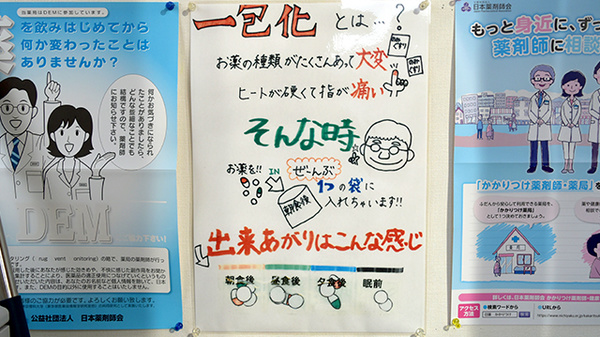 当薬局はDEMに参加しています。
を飲みはじめてから
何か変わったことは
ありませんか?
何かお気づきになられ
たことがありましたら、
どんな些細なことでも
結構ですので、薬剤師
にお知らせ下さい。
DEM
公益社団法人 日本薬剤師会
一包化とは…?
お薬の種類がたくさんあって大変
ヒートが硬くて指が痛い
そんな時
お薬を!!
IN
ぜーんぶ
1つの袋に
入れちゃいます!!
朝食後
出来あがりはこんな感じ
朝食後
昼食後
夕食後
眠前
日本薬剤師会
もっと身近に、ずっ
薬剤師に相談
「かかりつけ薬剤師・薬局」を
ふだんから安心して利用できる薬局を、
「かかりつけ薬局」
として1つ決めておきましょう。
薬局
詳しくは、日本薬剤師会
アクセス
方法
検索ワードから
URLから